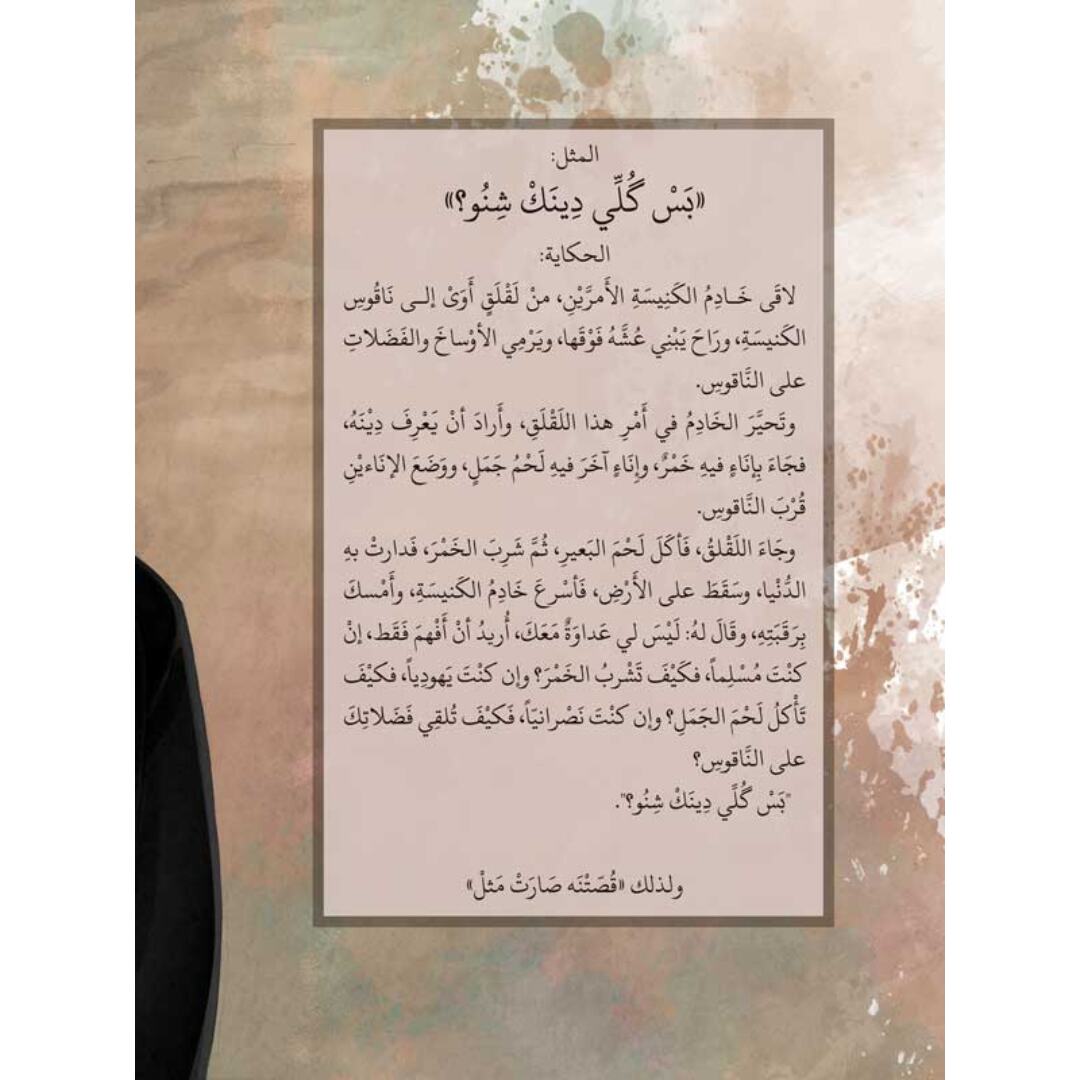 المثل:
«بَسْ گُلِّي دِينَكْ شِنُو؟»
الحكاية:
لاقَى خَـادِمُ الكَنِيسَةِ الأَمرَّيْنِ، منْ لَقْلَقٍ أَوَىْ إلـى نَاقُوسِ
الكَنيسَةِ، ورَاحَ يَبْنِي عُشَّهُ فَوْقَها، ويَرْمِي الأوْساخَ والفَضَلاتِ
على النَّاقوسِ.
وتَحيَّرَ الخَادِمُ في أَمْرِ هذا اللَقْلَقِ، وأَرادَ أنْ يَعْرِفَ دِيْنَهُ،
فجَاءَ بِإنَاءٍ فيهِ خَمْرٌ، وإِنَاءٍ آخَرَ فيهِ لَحْمُ جَمَلٍ، ووَضَعَ الإنَاءيْنِ
قُرْبَ النَّاقوسِ.
وجَاءَ اللَقْلقُ، فَأكَلَ لَحْمَ البَعيرِ، ثُمَّ شَرِبَ الخَمْرَ، فَدارتْ بهِ
الدُّنْيا، وسَقَطَ على الأَرْضِ، فَأسْرعَ خَادِمُ الكَنيسَةِ، وأَمْسكَ
بِرَقَبَتِهِ، وقَالَ لهُ: لَيْسَ لي عَداوَةٌ مَعَكَ، أُريدُ أنْ أَفْهمَ فَقَط، إنْ
كنْتَ مُسْلِماً، فكَيْفَ تَشْربُ الخَمْرَ؟ وإن كنْتَ يَهودِياً، فكيْفَ
تَأْكلُ لَحْمَ الجَمَلِ؟ وإن كنْتَ نَصْرانيّاً، فَكيْفَ تُلقِي فَضَلاتِكَ
على النَّاقوسِ؟
"بَسْ گُلَّي دِينَكْ شِنُو؟".
ولذلك «قُصَتْنَه صَارَتْ مَثلْ»